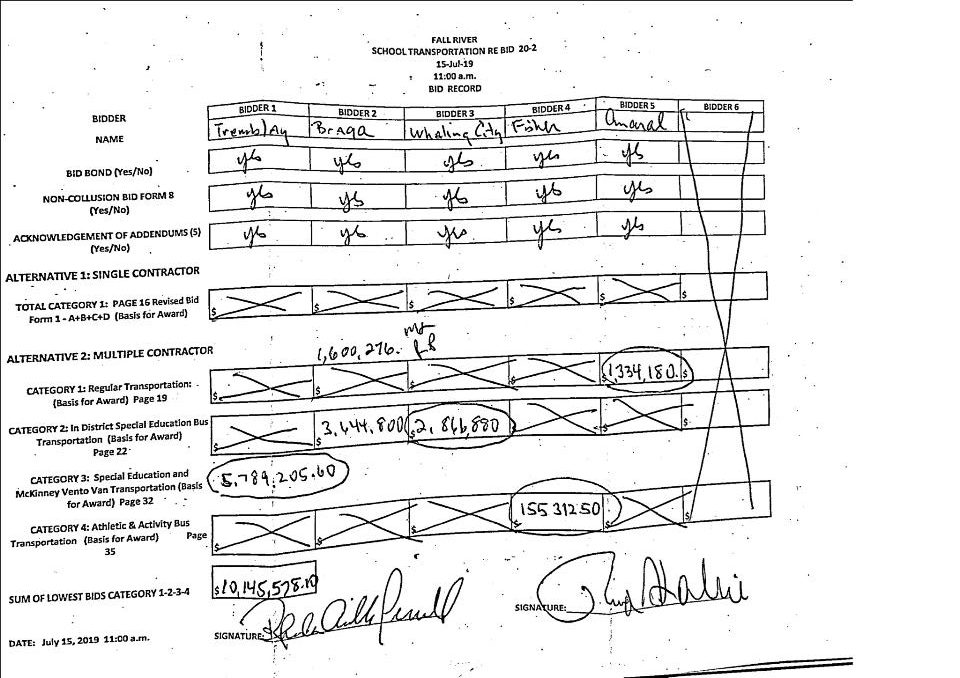 FALL RIVER
SCHOOL TRANSPORTATION RE BID 20-2
15-Jul-19
11:00 a.m.
BID RECORD
BIDDER BIDDER 1 BIDDER 2 BIDDER 3 BIDDER 4 BIDDER 5 BIDDER 6
NAME Tremblay Braga Whaling City Fisher Amaral
BID BOND (Yes/No) yes yes yes yes yes
NON-COLLUSION BID FORM 8
(Yes/No) yes yes yes yes yes
ACKNOWLEDGEMENT OF ADDENDUMS (5)
(Yes/No) yes yes yes yes yes
ALTERNATIVE 1: SINGLE CONTRACTOR
TOTAL CATEGORY 1: PAGE 16 Revised Bid
Form 1 - A+B+C+D (Basis for Award) $ $ $ $ $ $
1,600,276.
ALTERNATIVE 2: MULTIPLE CONTRACTOR
CATEGORY 1: Regular Transportation:
(Basis for Award) Page 19 $ $ $ $ $1,334,180. $
CATEGORY 2: In District Special Education Bus
Transportation (Basis for Award)
Page 22 $ $3,444,800 $2,866,880 $ $ $
CATEGORY 3: Special Education and
McKinney Vento Van Transportation (Basis
for Award) Page 32 5,789,205.60
CATEGORY 4: Athletic & Activity Bus
Transportation (Basis for Award) Page
35 $ $ $ $155 312 50 $ $
SUM OF LOWEST BIDS CATEGORY 1-2-3-4 $10,145,578.10
SIGNATURE: SIGNATURE:
DATE: July 15, 2019 11:00 a.m.